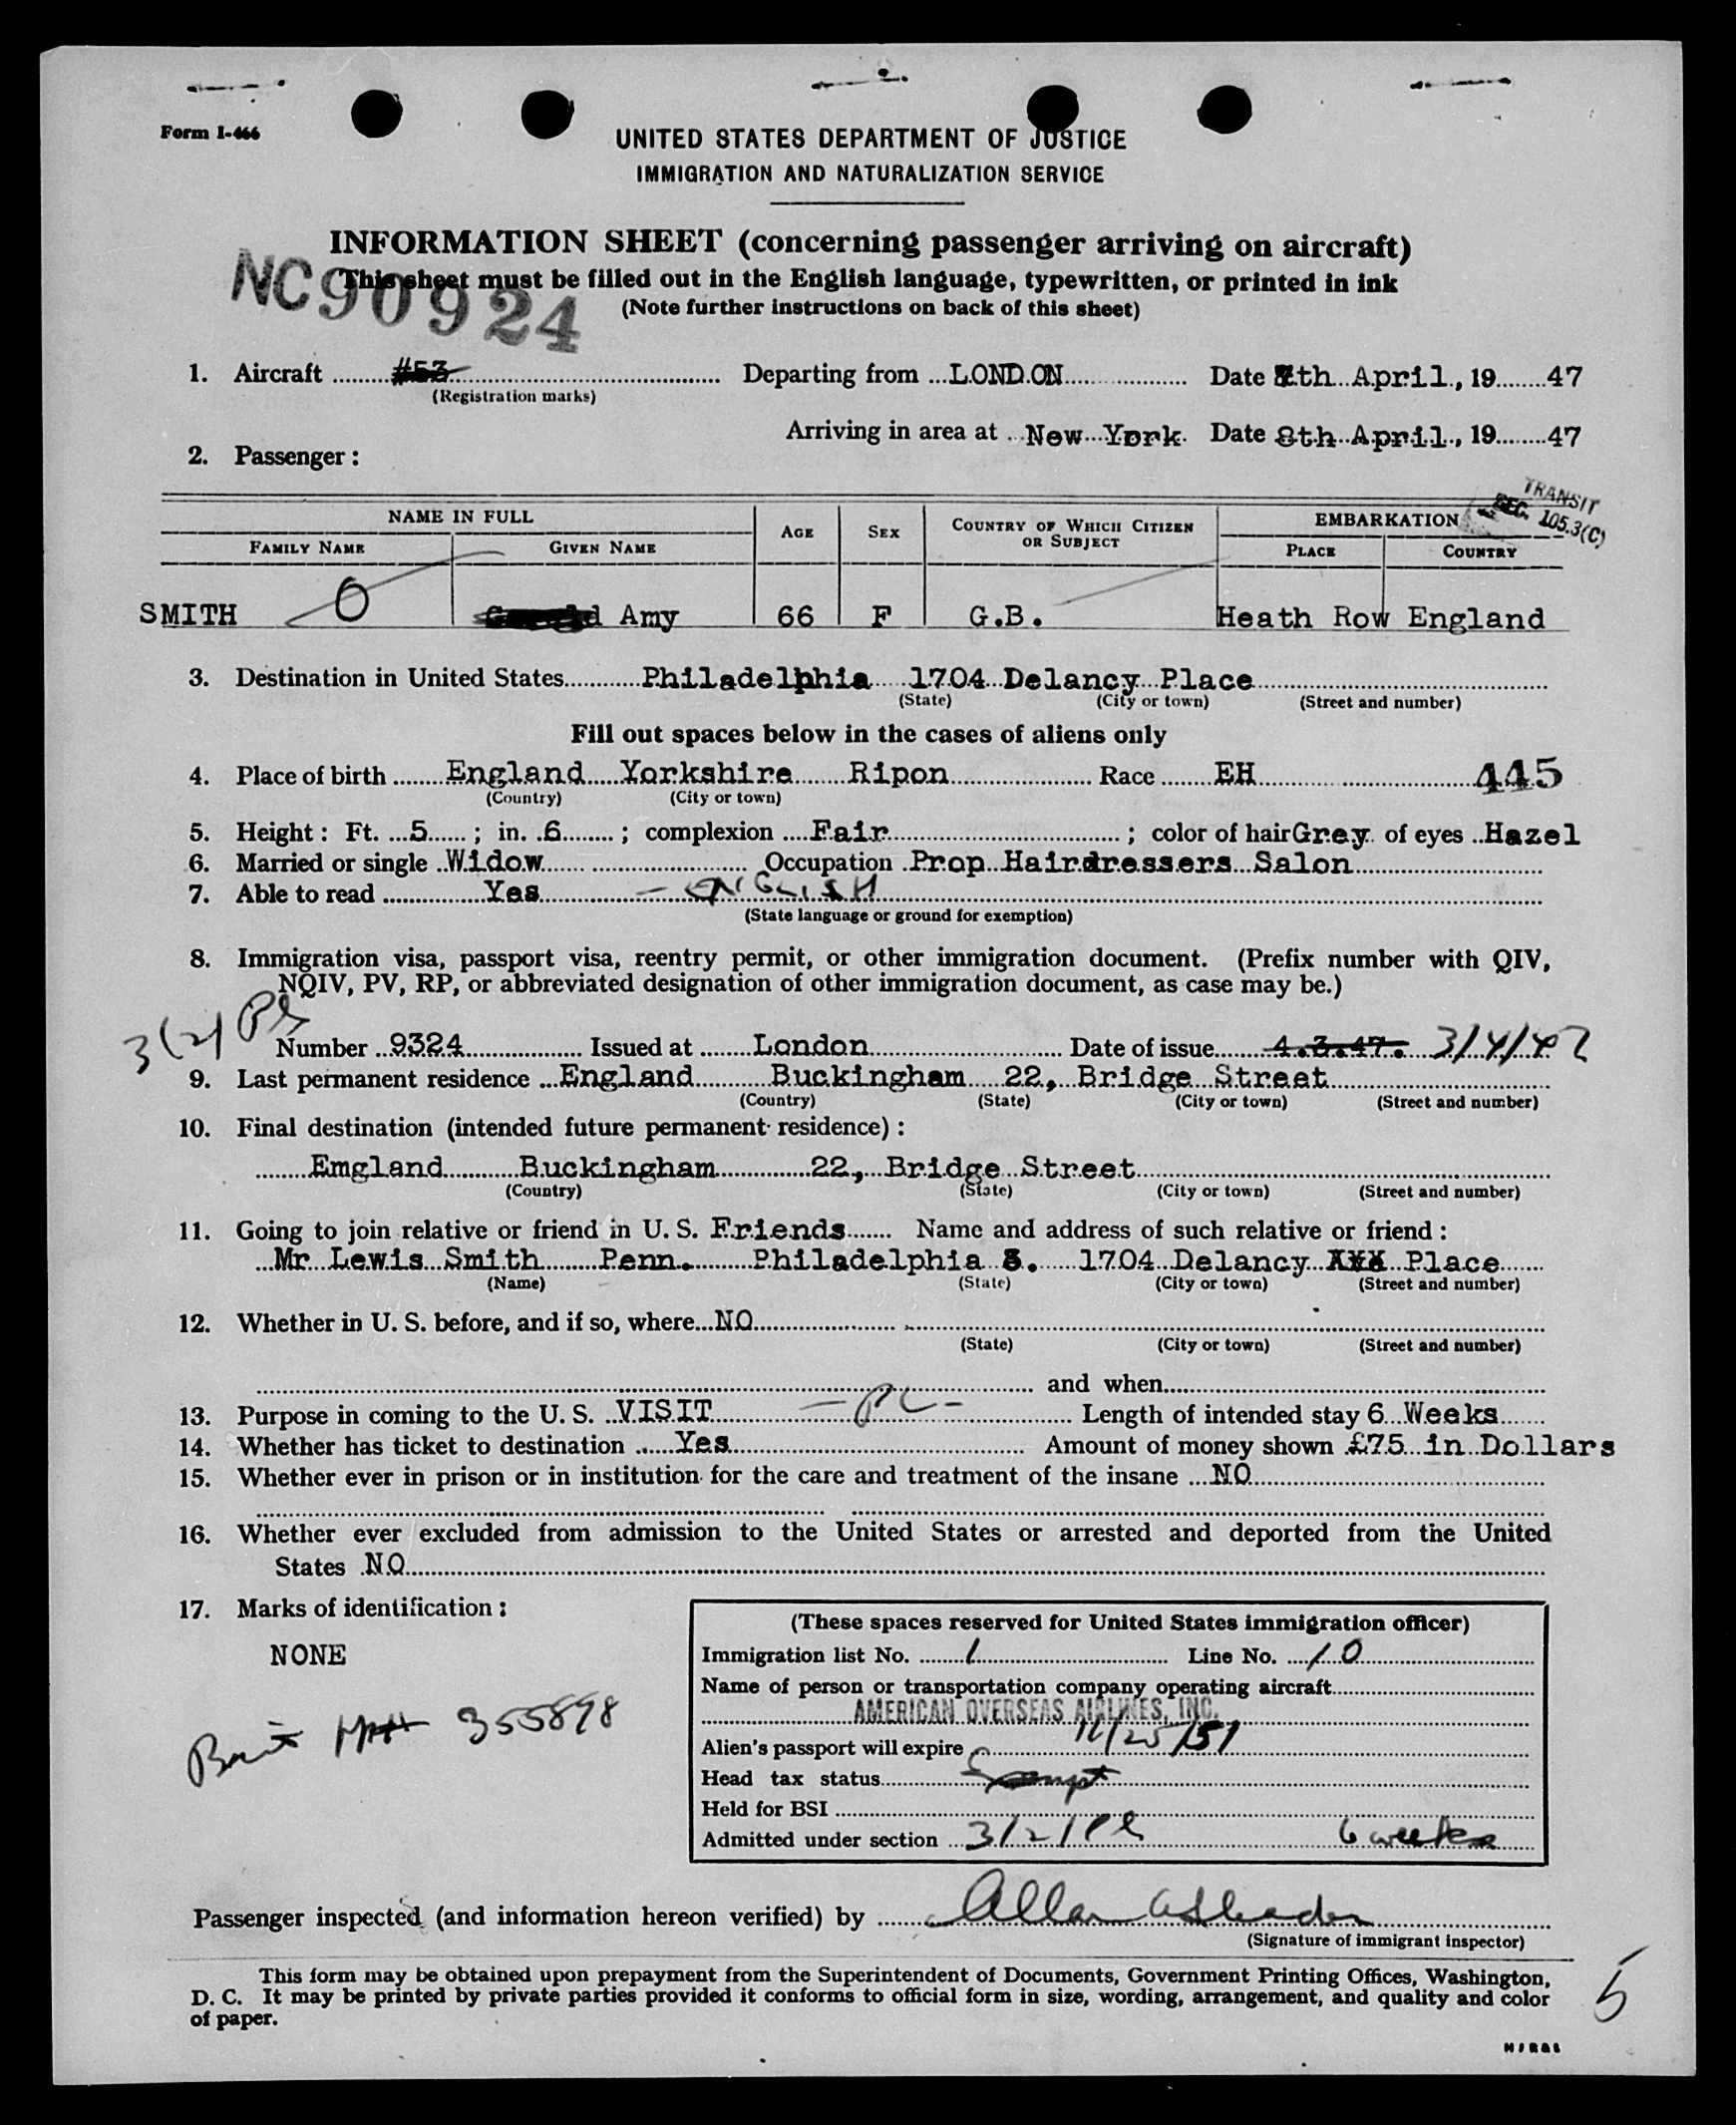 Form I-466
UNITED STATES DEPARTMENT OF JUSTICE
IMMIGRATION AND NATURALIZATION SERVICE
INFORMATION SHEET (concerning passenger arriving on aircraft)
This sheet must be filled out in the English language, typewritten, or printed in ink
NC90924
(Note further instructions on back of this sheet)
1. Aircraft #53 Departing from LONDON Date 7th April, 19 47
(Registration marks)
Arriving in area at New York Date 8th April, 19 47
2. Passenger:
TRANSIT
SEC. 105.3(C)
NAME IN FULL AGE SEX COUNTRY OF WHICH CITIZEN OR SUBJECT EMBARKATION
FAMILY NAME GIVEN NAME PLACE COUNTRY
SMITH 0 Amy 66 F G.B. Heath Row England
3. Destination in United States Philadelphia 1704 Delancy Place
(State) (City or town) (Street and number)
Fill out spaces below in the cases of aliens only
4. Place of birth England Yorkshire Ripon Race EH 445
(Country) (City or town)
5. Height: Ft. 5; in. 6; complexion Fair; color of hair Grey of eyes Hazel
6. Married or single Widow Occupation Prop Hairdressers Salon
7. Able to read Yes - ENGLISH
(State language or ground for exemption)
8. Immigration visa, passport visa, reentry permit, or other immigration document. (Prefix number with QIV,
NQIV, PV, RP, or abbreviated designation of other immigration document, as case may be.)
3(2) PV
Number 9324 Issued at London Date of issue 4.3.47. 3/4/47
9. Last permanent residence England Buckingham 22, Bridge Street
(Country) (State) (City or town) (Street and number)
10. Final destination (intended future permanent residence):
Emgland Buckingham 22, Bridge Street
(Country) (State) (City or town) (Street and number)
11. Going to join relative or friend in U. S. Friends Name and address of such relative or friend:
Mr Lewis Smith Penn. Philadelphia 3. 1704 Delancy XXX Place
(Name) (State) (City or town) (Street and number)
12. Whether in U. S. before, and if so, where NO
(State) (City or town) (Street and number)
and when
13. Purpose in coming to the U. S. VISIT - PL - Length of intended stay 6 Weeks
14. Whether has ticket to destination Yes Amount of money shown £75 in Dollars
15. Whether ever in prison or in institution for the care and treatment of the insane NO
16. Whether ever excluded from admission to the United States or arrested and deported from the United
States NO
17. Marks of identification:
NONE
Brit 355898
(These spaces reserved for United States immigration officer)
Immigration list No. 1 Line No. 10
Name of person or transportation company operating aircraft
AMERICAN OVERSEAS AIRLINES, INC.
Alien's passport will expire 11/25/51
Head tax status Exempt
Held for BSI
Admitted under section 3/2/ 6 weeks
Passenger inspected (and information hereon verified) by Allan
(Signature of immigrant inspector)
This form may be obtained upon prepayment from the Superintendent of Documents, Government Printing Offices, Washington,
D. C. It may be printed by private parties provided it conforms to official form in size, wording, arrangement, and quality and color
of paper.
5